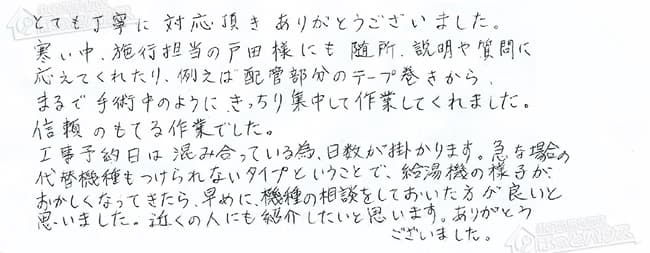 とても丁寧に対応頂きありがとうございました。
寒い中、施行担当の戸田様にも随所、説明や質問に
応えてくれたり、例えば配管部分のテープ巻きから、
まるで手術中のようにきっちり集中して作業してくれました。
信頼のもてる作業でした。
工事予約日は混み合っている為、日数が掛かります。急な場合の
代替機種もつけられないタイプということで、給湯機の様子が
おかしくなってきたら、早めに、機種の相談をしておいた方が良いと
思いました。近くの人にも紹介したいと思います。ありがとう
ございました。